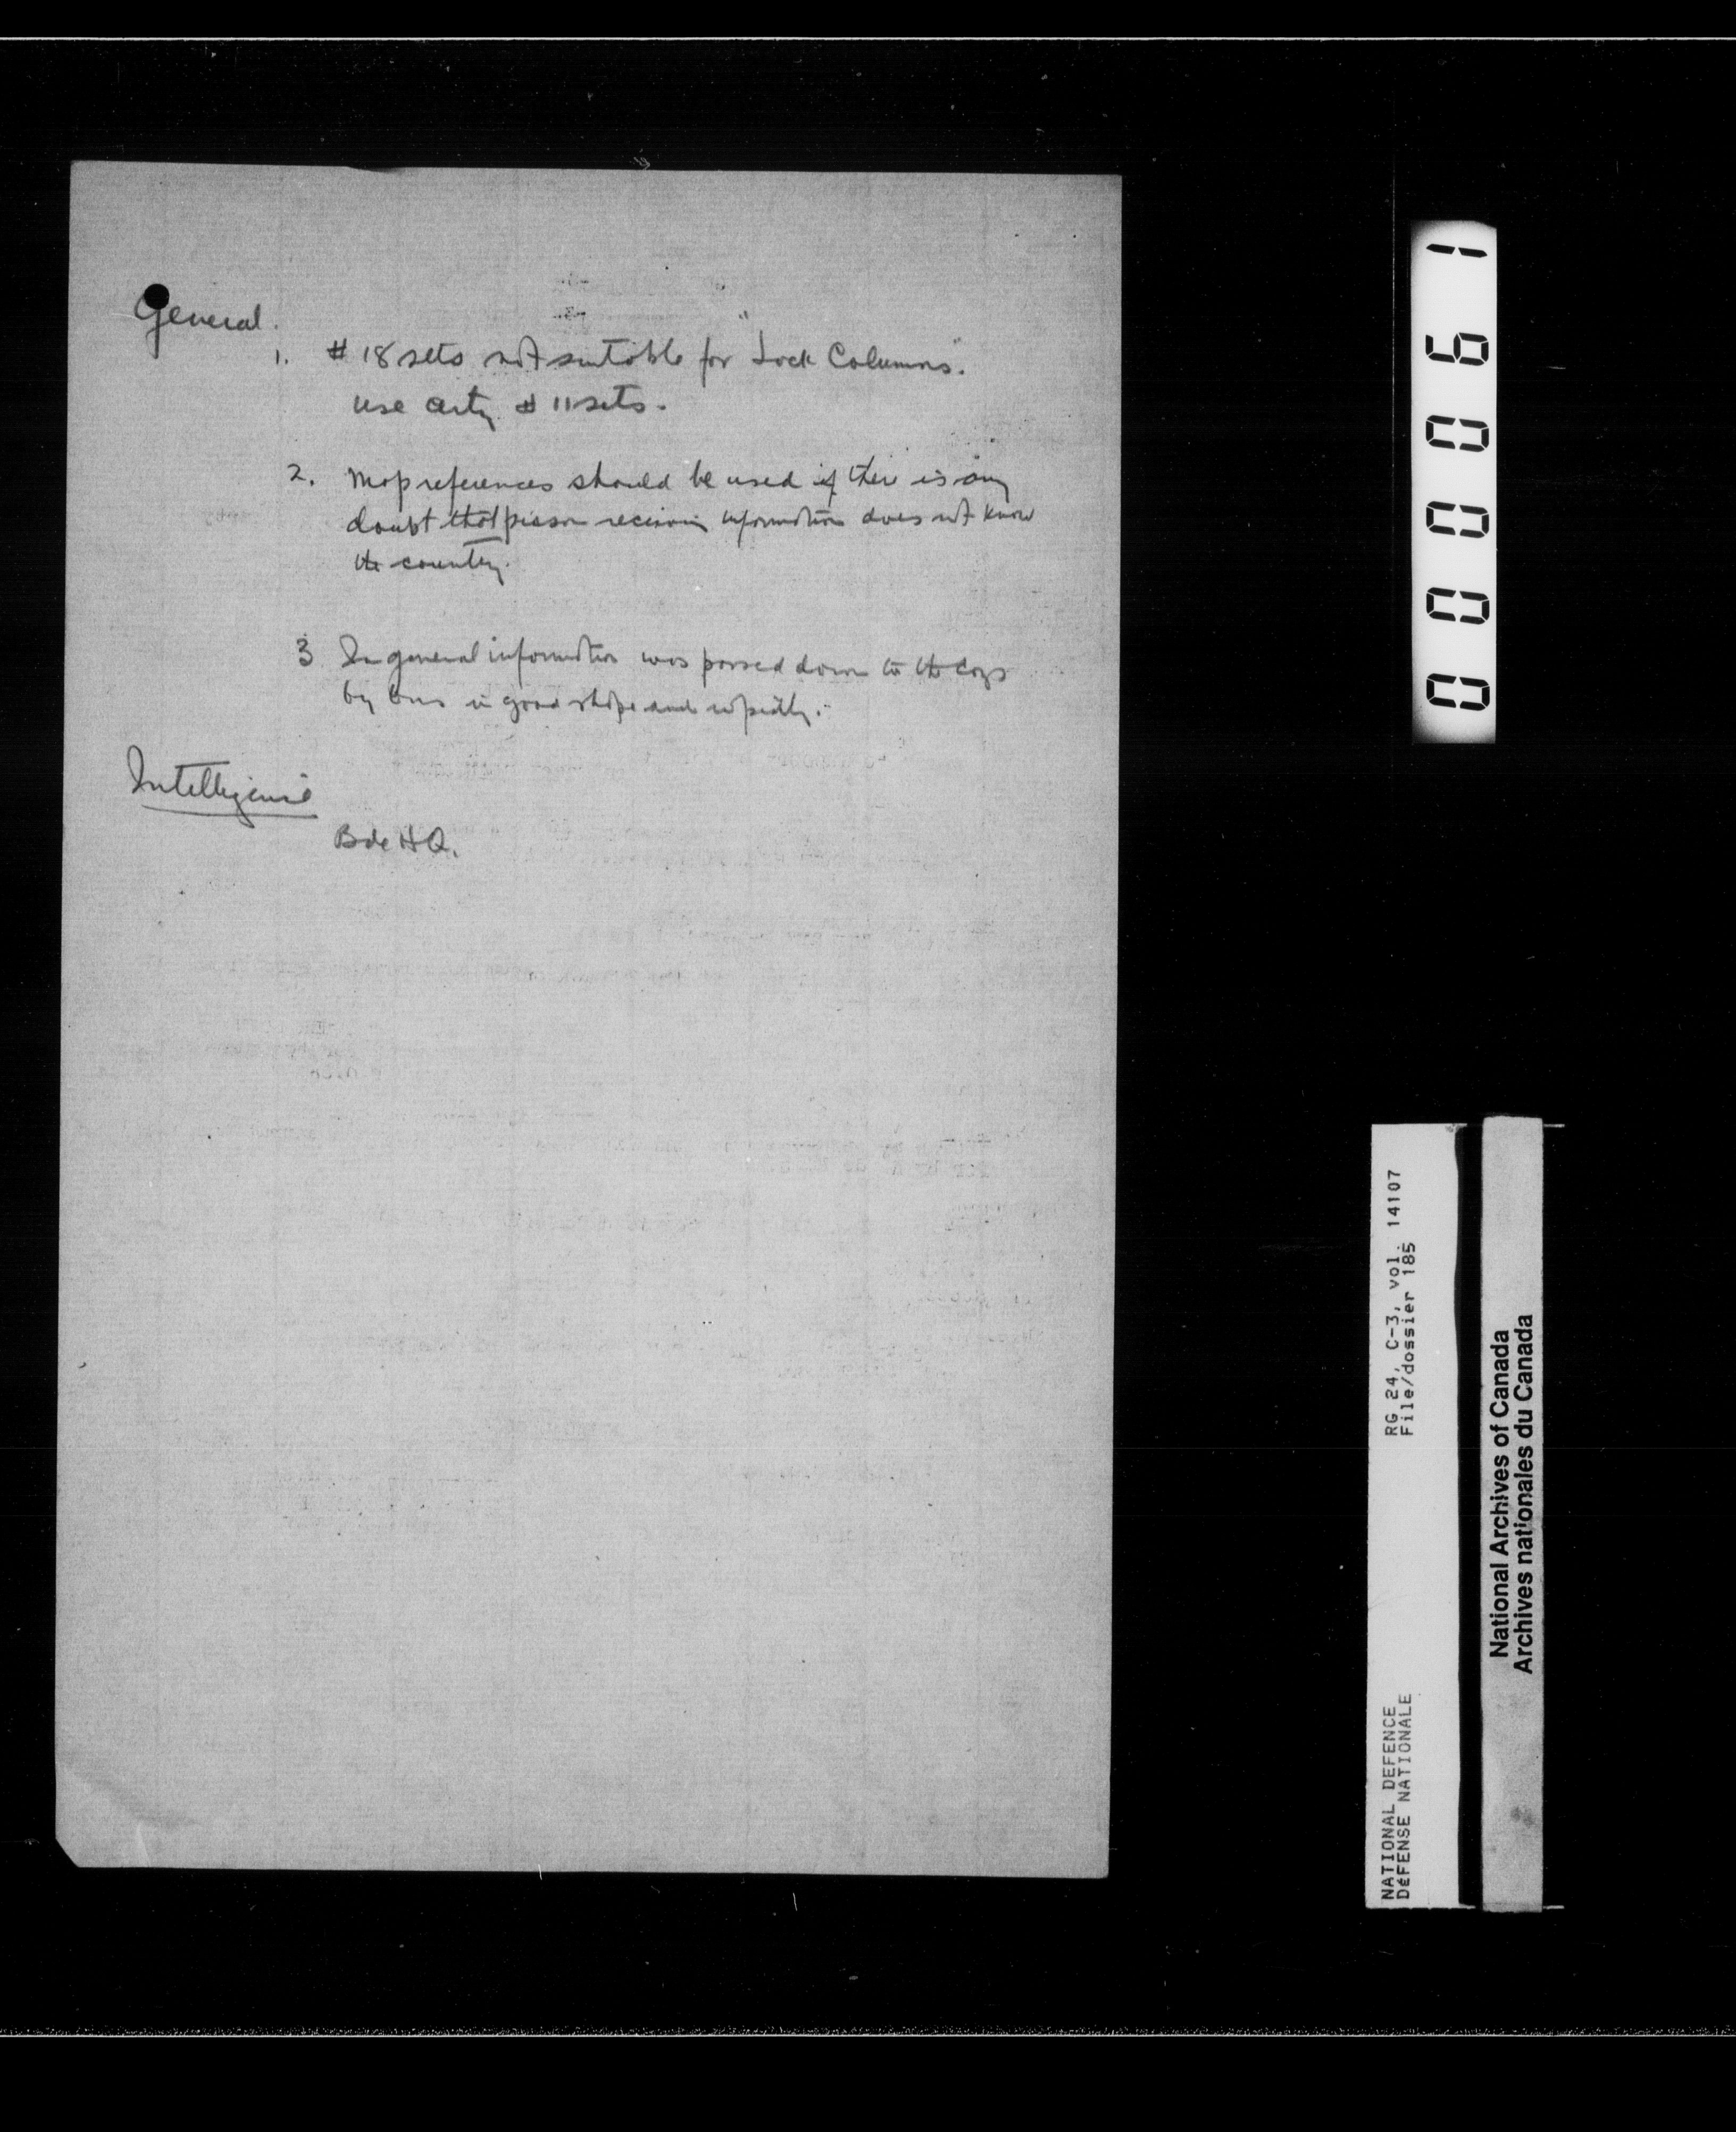 General.
1. # 18 sets not suitable for "Jock Columns".
use arty # 11 sets.
2. Map references should be used if there is any
doubt that person receiving information does not know
the country.
3 In general information was passed down to the Coys
by bns in good shape and rapidly.
Intelligence
Bde HQ.
000061
RG 24, C-3, vol. 14107
File/dossier 185
NATIONAL DEFENCE
DÉFENSE NATIONALE
National Archives of Canada
Archives nationales du Canada